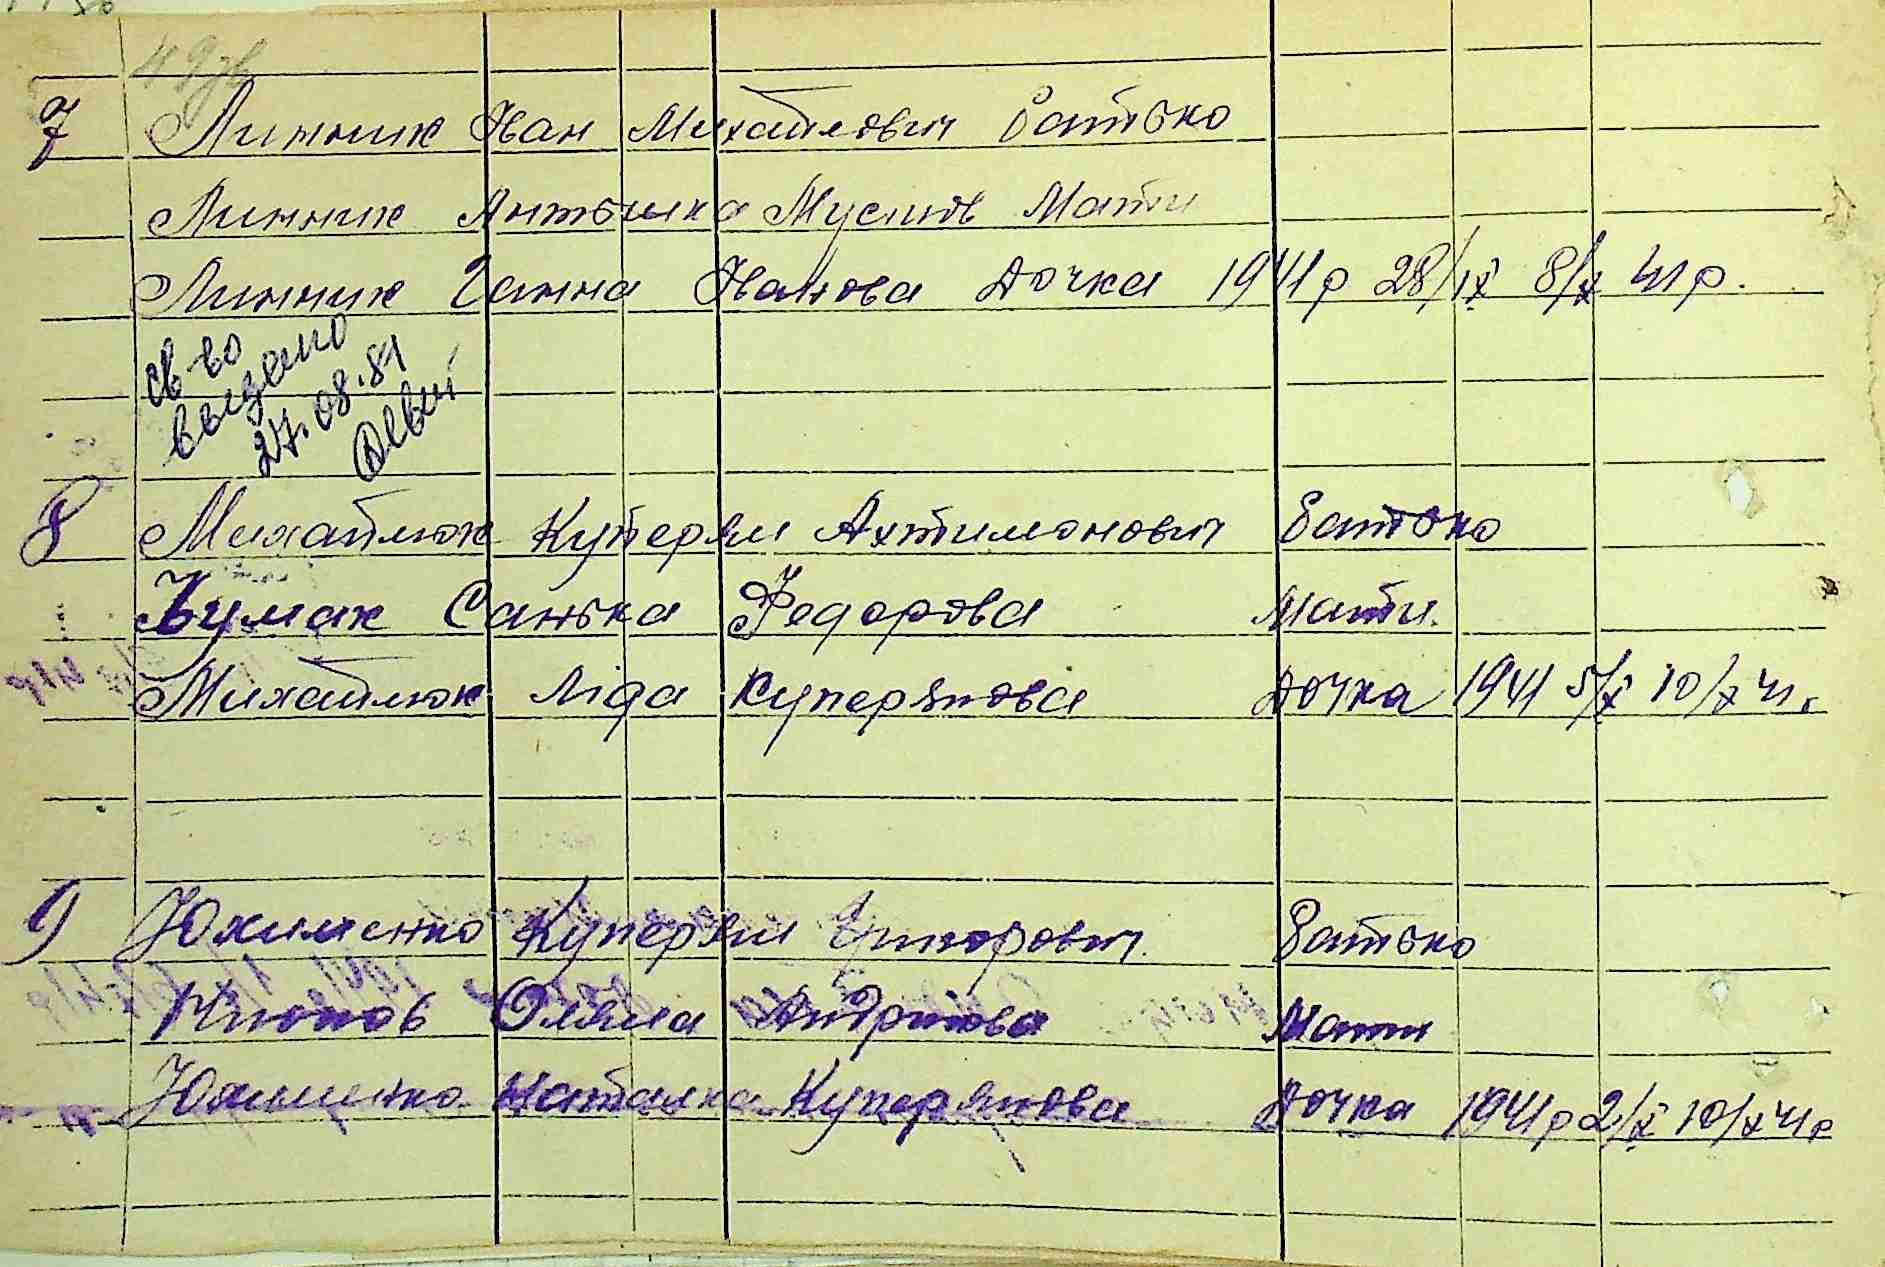 7 Линник Иван Михайлович батько
Линник Антонина Мусиёв Мати
Линник Ганна Иванова дочка 1941р 28/IX 8/X 41р.
св-во
выдано
27.08.81
8 Михайлюк Куперян Ахтимонович батько
Чумак Санька Федорова мати.
Михайлюк Ліда Куперянова дочка 1941 5/X 10/X 41р
9 Юхименко Куперян Григорович. батько
Оляна Андріёва мати
Юхименко Наталка Куперянова дочка 1941р 2/X 10/X 41р